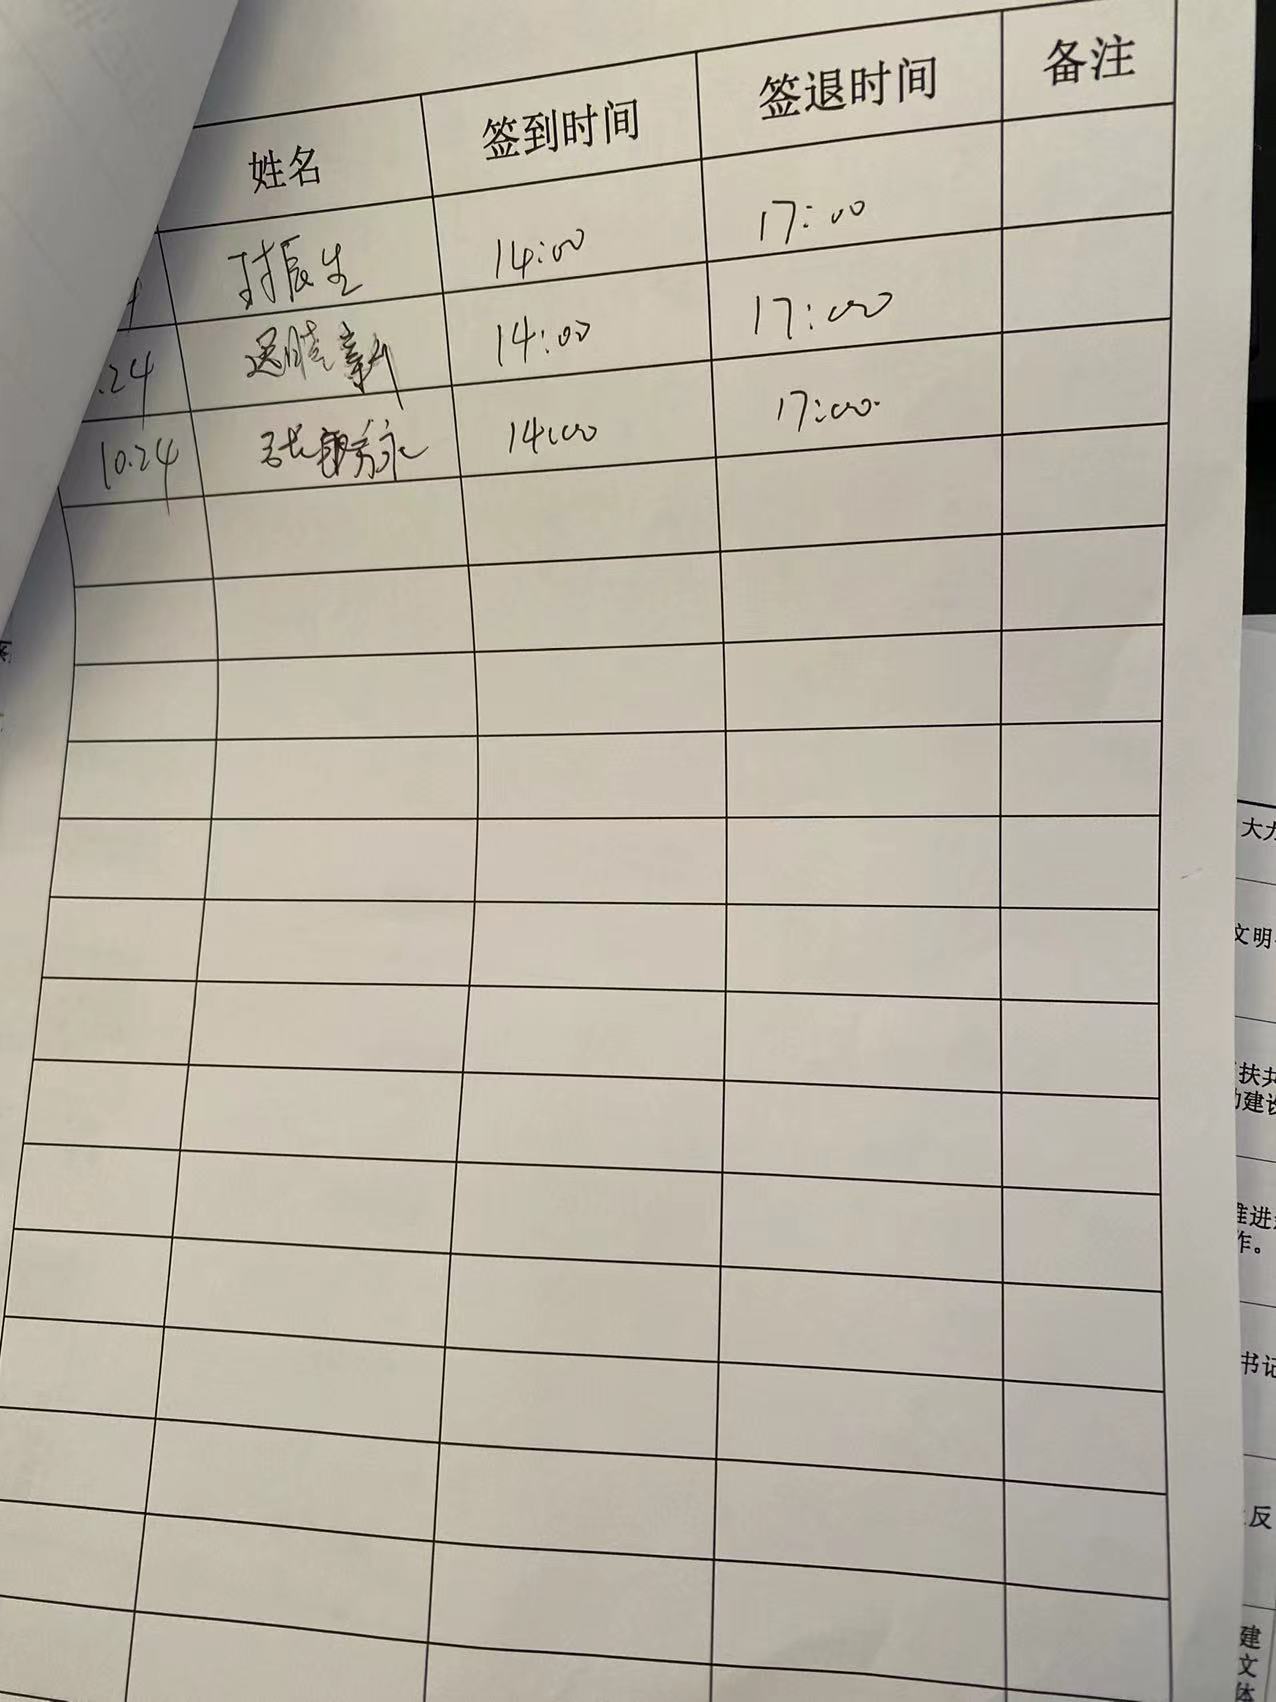 姓名 签到时间 签退时间 备注
封辰生 14:00 17:00
.24 迟晴新 14:00 17:00
10.24 14:00 17:00.
大力
文明
扶共
建设
推进
作。
书记
反
建
文
体